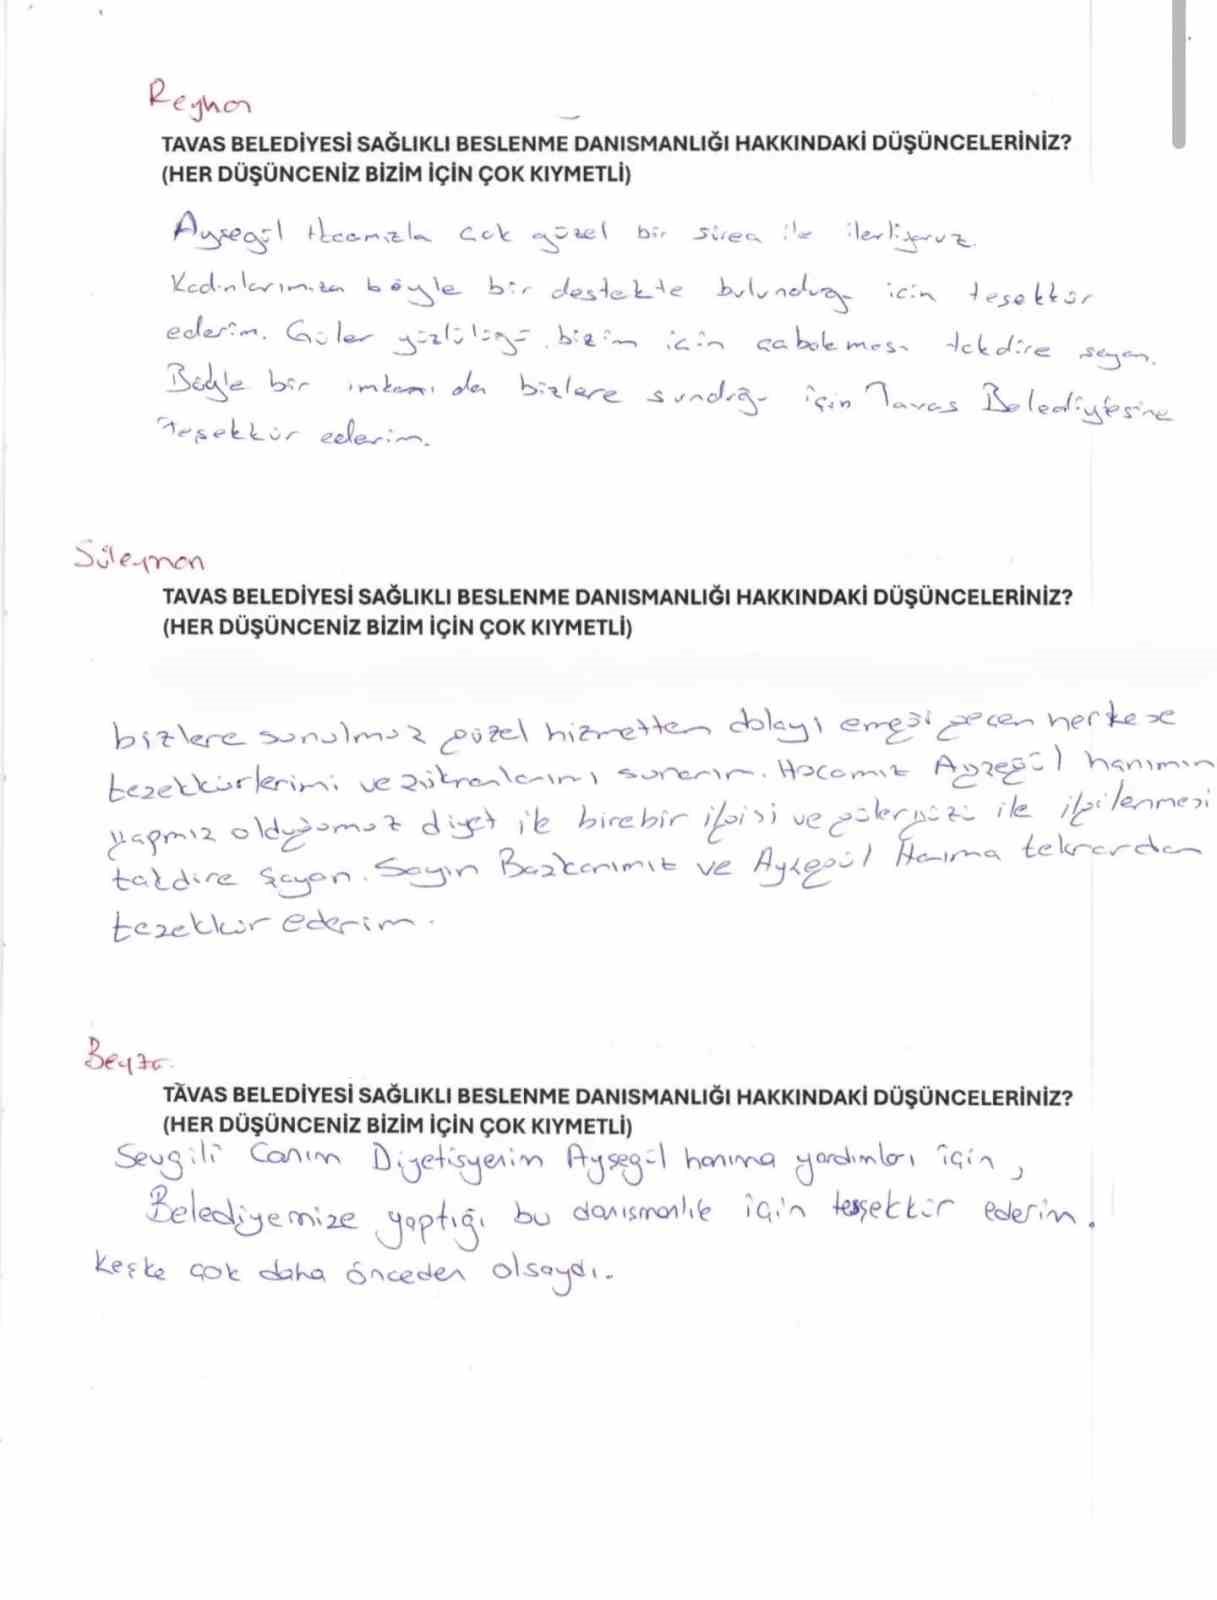 Reyhan
TAVAS BELEDİYESİ SAĞLIKLI BESLENME DANISMANLIĞI HAKKINDAKİ DÜŞÜNCELERİNİZ?
(HER DÜŞÜNCENİZ BİZİM İÇİN ÇOK KIYMETLİ)
Ayşegül Hocamızla çok güzel bir süreç ile ilerliyoruz.
Kadınlarımıza böyle bir destekte bulunduğu için teşekkür
ederim. Güler yüzlülüğü, bizim için çabalaması takdire şayan.
Böyle bir imkanı da bizlere sunduğu için Tavas Belediyesine
Teşekkür ederim.
Süleyman
TAVAS BELEDİYESİ SAĞLIKLI BESLENME DANISMANLIĞI HAKKINDAKİ DÜŞÜNCELERİNİZ?
(HER DÜŞÜNCENİZ BİZİM İÇİN ÇOK KIYMETLİ)
bizlere sunulmuş güzel hizmetten dolayı emeği geçen herkese
teşekkürlerimi ve şükranlarımı sunarım. Hocamız Ayşegül hanımın
yapmış olduğumuz diyet ile birebir ilgisi ve güleryüzü ile ilgilenmesi
takdire şayan. Sayın Başkanımız ve Ayşegül Hanıma tekrardan
teşekkür ederim.
Beyza
TAVAS BELEDİYESİ SAĞLIKLI BESLENME DANISMANLIĞI HAKKINDAKİ DÜŞÜNCELERİNİZ?
(HER DÜŞÜNCENİZ BİZİM İÇİN ÇOK KIYMETLİ)
Sevgili Canım Diyetisyenim Ayşegül hanıma yardımları için,
Belediyemize yaptığı bu danışmanlık için teşşekkür ederim.
Keşke çok daha önceden olsaydı.